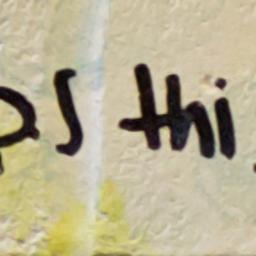 ps thi